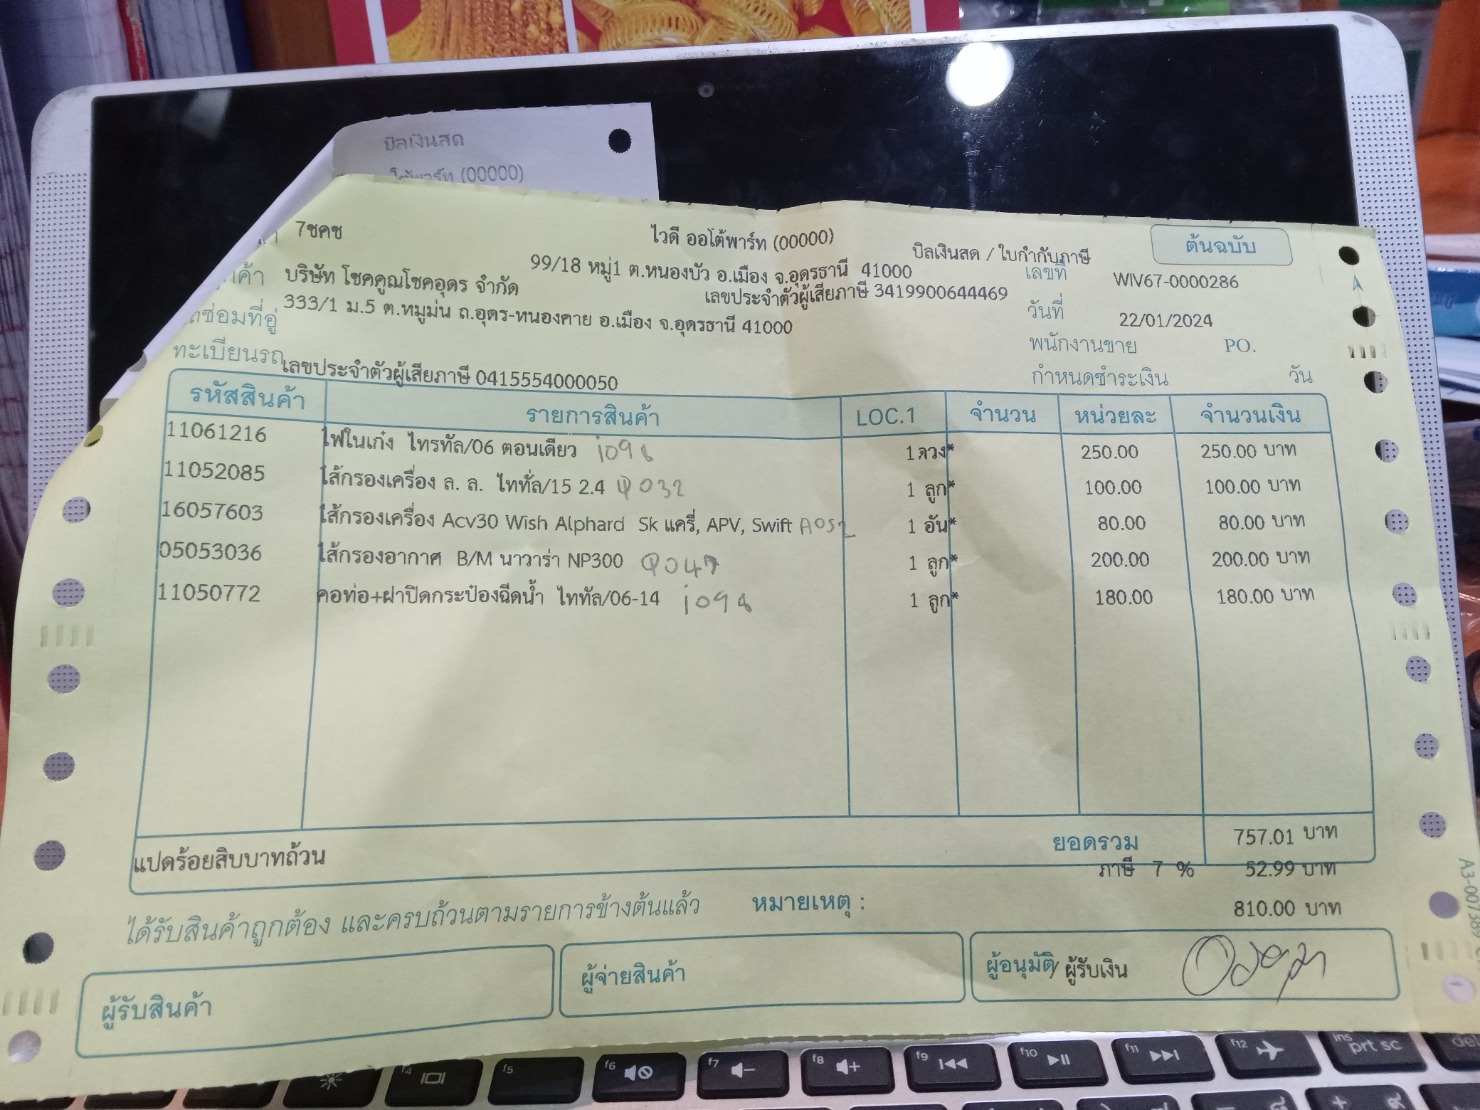 บิลเงินสด
(00000)
7ชคช
ไวดี ออโต้พาร์ท (00000)
บิลเงินสด / ใบกำกับภาษี
ต้นฉบับ
99/18 หมู่1 ต.หนองบัว อ.เมือง จ.อุดรธานี 41000
เลขที่ WIV67-0000286
บริษัท โชคคูณโชคอุดร จำกัด
เลขประจำตัวผู้เสียภาษี 3419900644469
333/1 ม.5 ต.หมูม่น ถ.อุดร-หนองคาย อ.เมือง จ.อุดรธานี 41000
วันที่ 22/01/2024
ทะเบียนรถ
พนักงานขาย PO.
เลขประจำตัวผู้เสียภาษี 0415554000050
กำหนดชำระเงิน วัน
รหัสสินค้า รายการสินค้า LOC.1 จำนวน หน่วยละ จำนวนเงิน
11061216 ไฟในเก๋ง ไทรทัล/06 ตอนเดียว 1 ดวง* 250.00 250.00 บาท
11052085 ไส้กรองเครื่อง ล. ล. ไททั่ล/15 2.4 1 ลูก* 100.00 100.00 บาท
16057603 ไส้กรองเครื่อง Acv30 Wish Alphard Sk แครี่, APV, Swift A052 1 อัน* 80.00 80.00 บาท
05053036 ไส้กรองอากาศ B/M นาวาร่า NP300 1 ลูก* 200.00 200.00 บาท
11050772 คอท่อ+ฝาปิดกระป๋องฉีดน้ำ ไททัล/06-14 1 ลูก* 180.00 180.00 บาท
แปดร้อยสิบบาทถ้วน
ยอดรวม 757.01 บาท
ภาษี 7 % 52.99 บาท
ได้รับสินค้าถูกต้อง และครบถ้วนตามรายการข้างต้นแล้ว หมายเหตุ : 810.00 บาท
ผู้รับสินค้า
ผู้จ่ายสินค้า
ผู้อนุมัติ/ ผู้รับเงิน
f5
f6
f7
f8
f9
f10
f11
f12
ins
prt sc